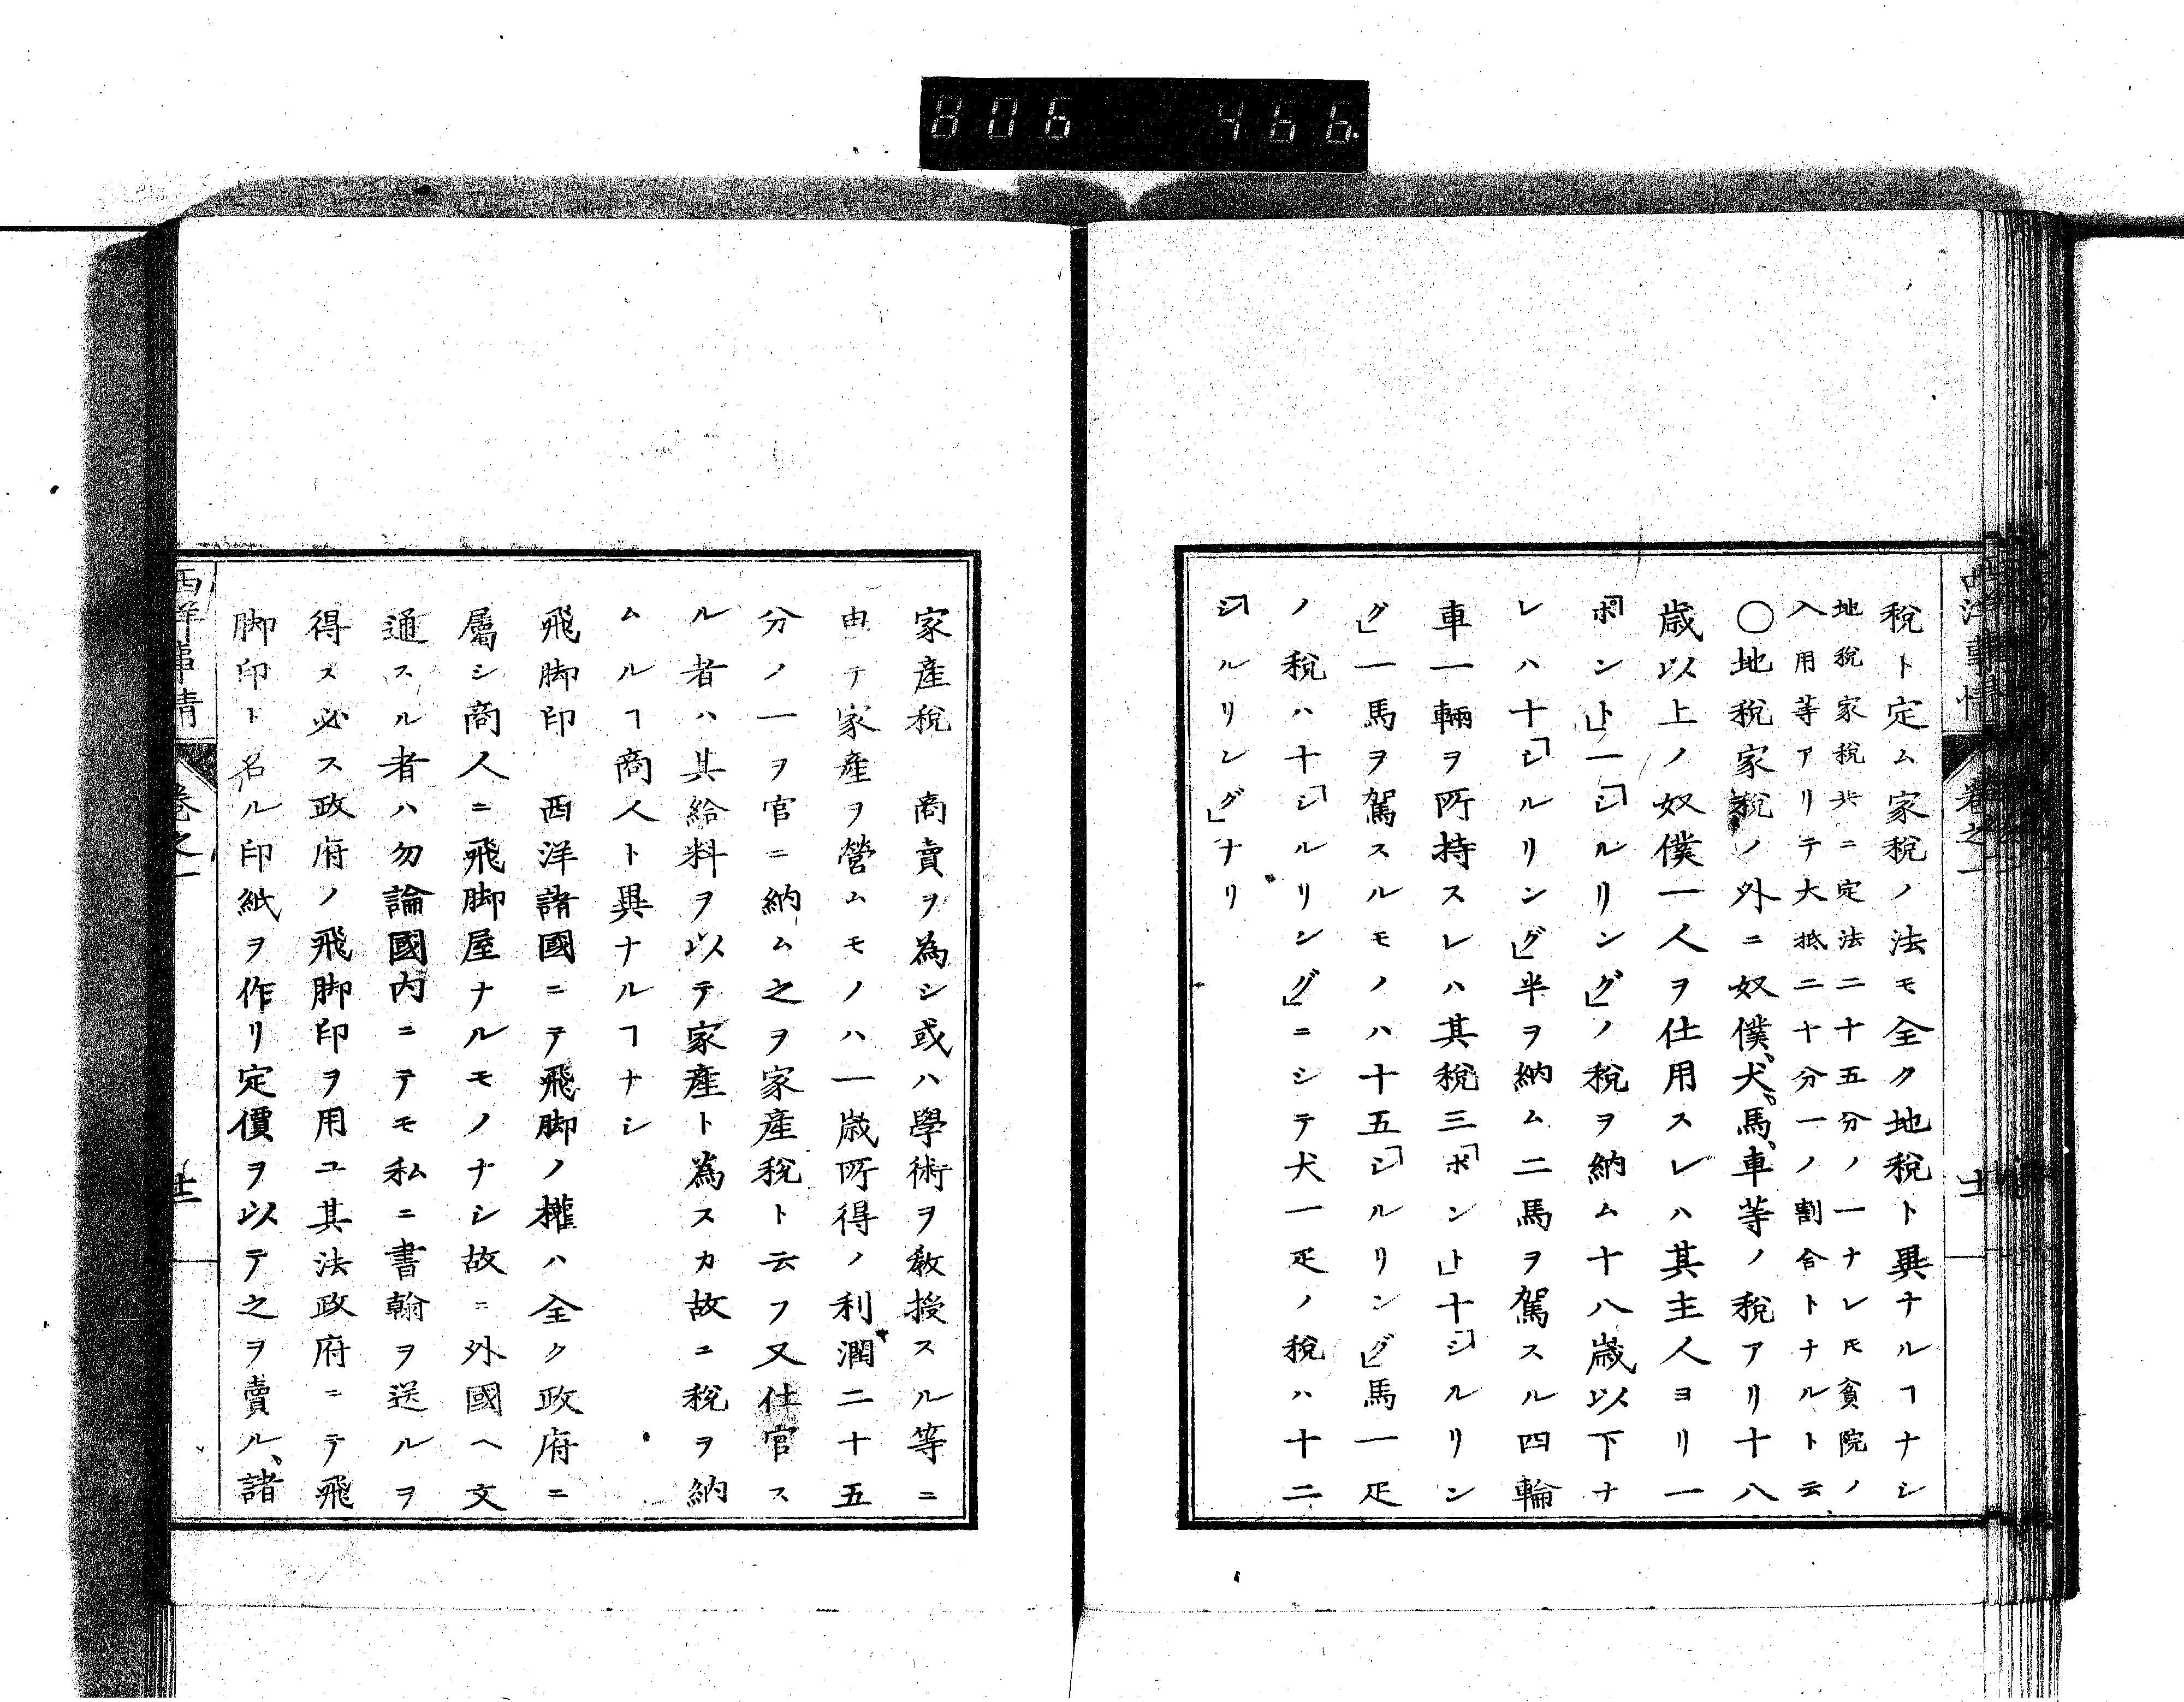 806 466.
西洋事情 卷之一
税ト定ム家税ノ法モ全ク地税ト異ナルヿナシ
地税家税共ニ定法二十五分ノ一ナレ𪜈貧院ノ
入用等アリテ大抵二十分一ノ割合トナルト云
〇地税家税ノ外ニ奴僕、犬、馬、車等ノ税アリ十八
歳以上ノ奴僕一人ヲ仕用スレハ其主人ヨリ一
「ポンド」一「シルリング」ノ税ヲ納ム十八歳以下ナ
レハ十「シルリング」半ヲ納ム二馬ヲ駕スル四輪
車一輛ヲ所持スレハ其税三「ポンド」十「シルリン
グ」一馬ヲ駕スルモノハ十五「シルリング」馬一疋
ノ税ハ十「シルリング」ニシテ犬一疋ノ税ハ十二
「シルリング」ナリ
家産税 商賣ヲ為シ或ハ學術ヲ教授スル等ニ
由テ家産ヲ營ムモノハ一歳所得ノ利潤二十五
分ノ一ヲ官ニ納ム之ヲ家産税ト云フ又仕官ス
ル者ハ其給料ヲ以テ家産ト為スカ故ニ税ヲ納
ムルヿ商人ト異ナルヿナシ
飛脚印 西洋諸國ニテ飛脚ノ權ハ全ク政府ニ
屬シ商人ニ飛脚屋ナルモノナシ故ニ外國ヘ文
通スル者ハ勿論國内ニテモ私ニ書翰ヲ送ルヲ
得ス必ス政府ノ飛脚印ヲ用ユ其法政府ニテ飛
脚印ト名ル印紙ヲ作リ定價ヲ以テ之ヲ賣ル、諸
西洋事情 卷之一